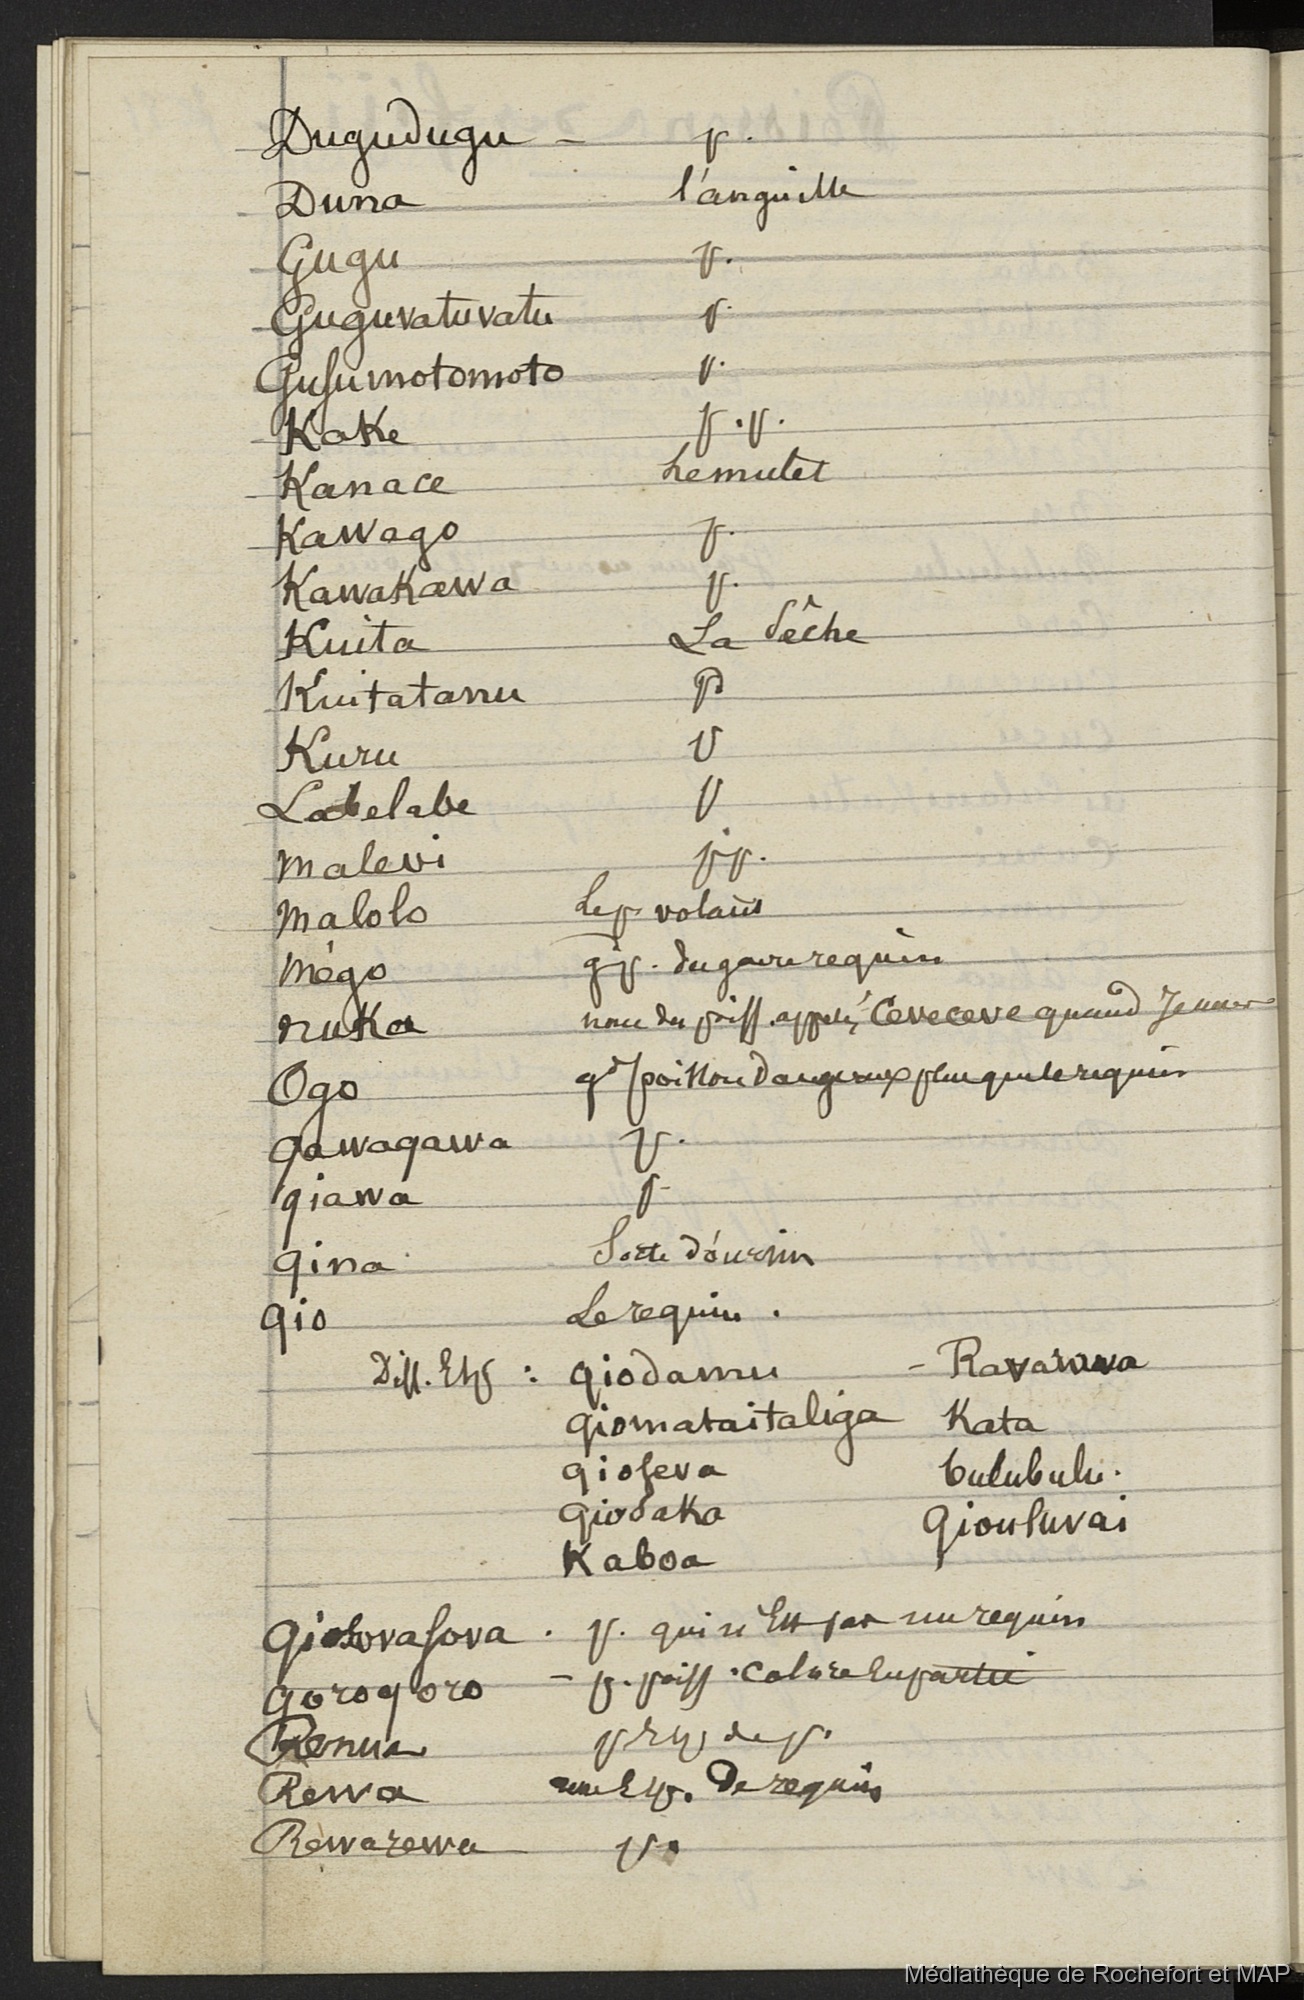 Dugudugu - p.
Duna l'anguille
Gugu p.
Guguvatuvatu p.
Gusumotomoto p.
Kake p.p.
Kanace Le mulet
Kawago p.
Kawakawa p.
Kuita La sêche
Kuitatanu p
Kuru p
Labelabe p
Malevi pp.
Malolo Le p. volant
Mego gp. du genre requin
nuka nom du poiss. appelé, Ceveceve quand jeune
Ogo gd poisson dangereux plus que le requin
qawaqawa p.
qiawa p
qina Sorte d'oursin
qio Le requin.
Diff. Esp : qiodamu - Ravarava
qiomataitaliga Kata
qioseva bulubulu.
qiodaka Qiouluvai
Kaboa
Qiosovasova. p. qui n'est pas un requin
qoroqoro - p. poiss.
Renua p esp de p.
Rewa une Esp. De requin
Rewarewa p.
Médiathèque de Rochefort et MAP